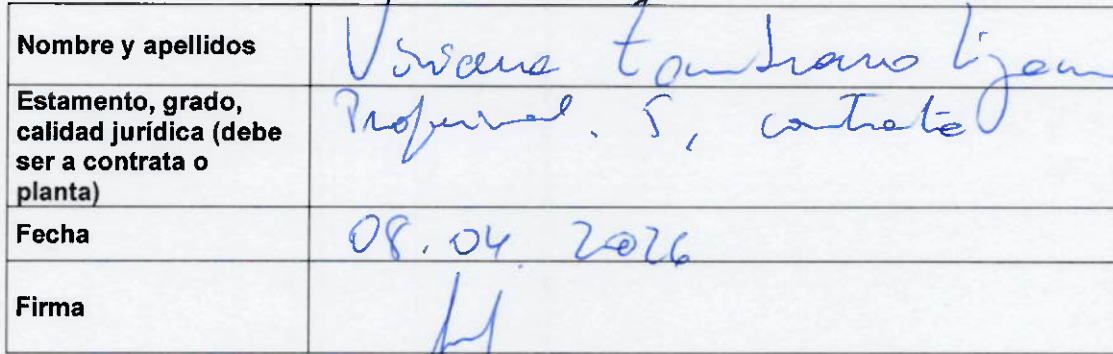 Nombre y apellidos
Viviana Zambrano
Estamento, grado,
calidad jurídica (debe
ser a contrata o
planta)
Profesional, 5, contrata
Fecha
08.04 2026
Firma